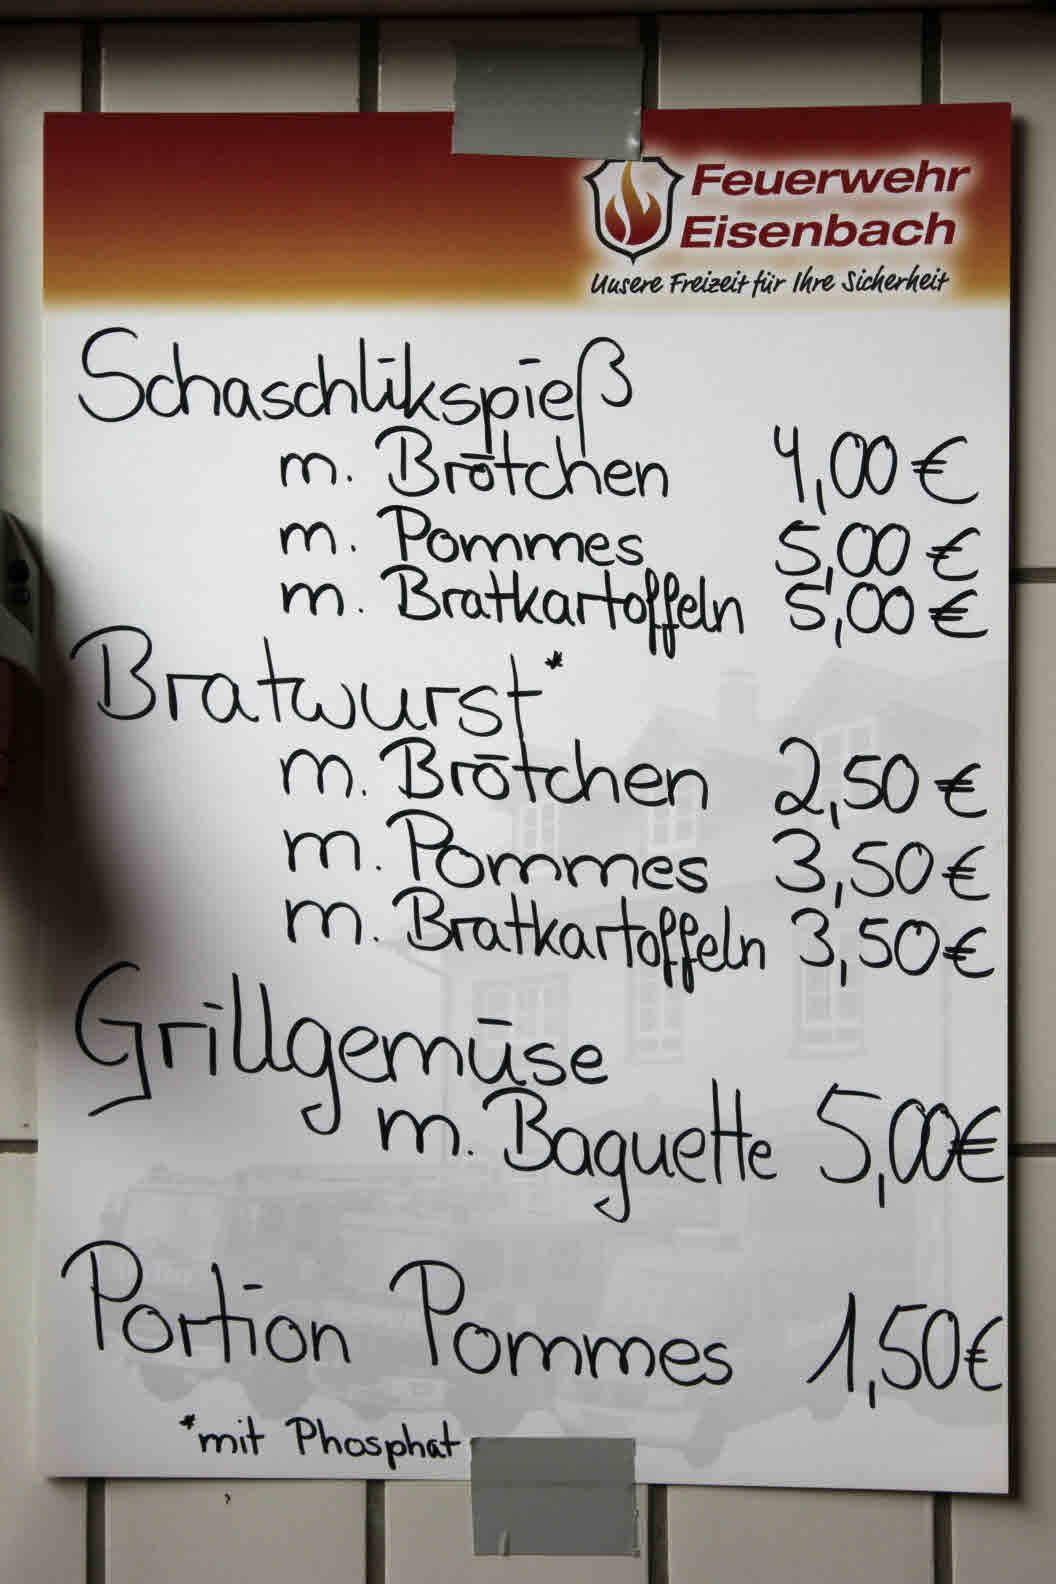 Feuerwehr
Eisenbach
Unsere Freizeit für Ihre Sicherheit
Schaschlikspieß
m. Brötchen 4,00 €
m. Pommes 5,00 €
m. Bratkartoffeln 5,00 €
Bratwurst*
m. Brötchen 2,50 €
m. Pommes 3,50 €
m. Bratkartoffeln 3,50 €
Grillgemüse
m. Baguette 5,00 €
Portion Pommes 1,50 €
*mit Phosphat